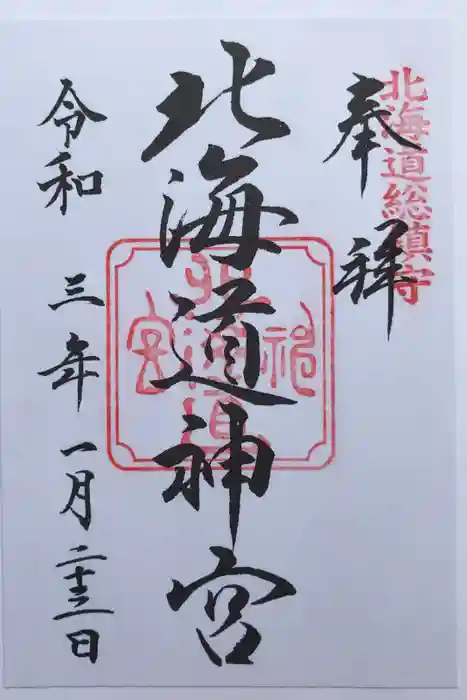 北海道総鎮守
奉拝
北海道神宮
北海道神宮
令和三年一月二十三日